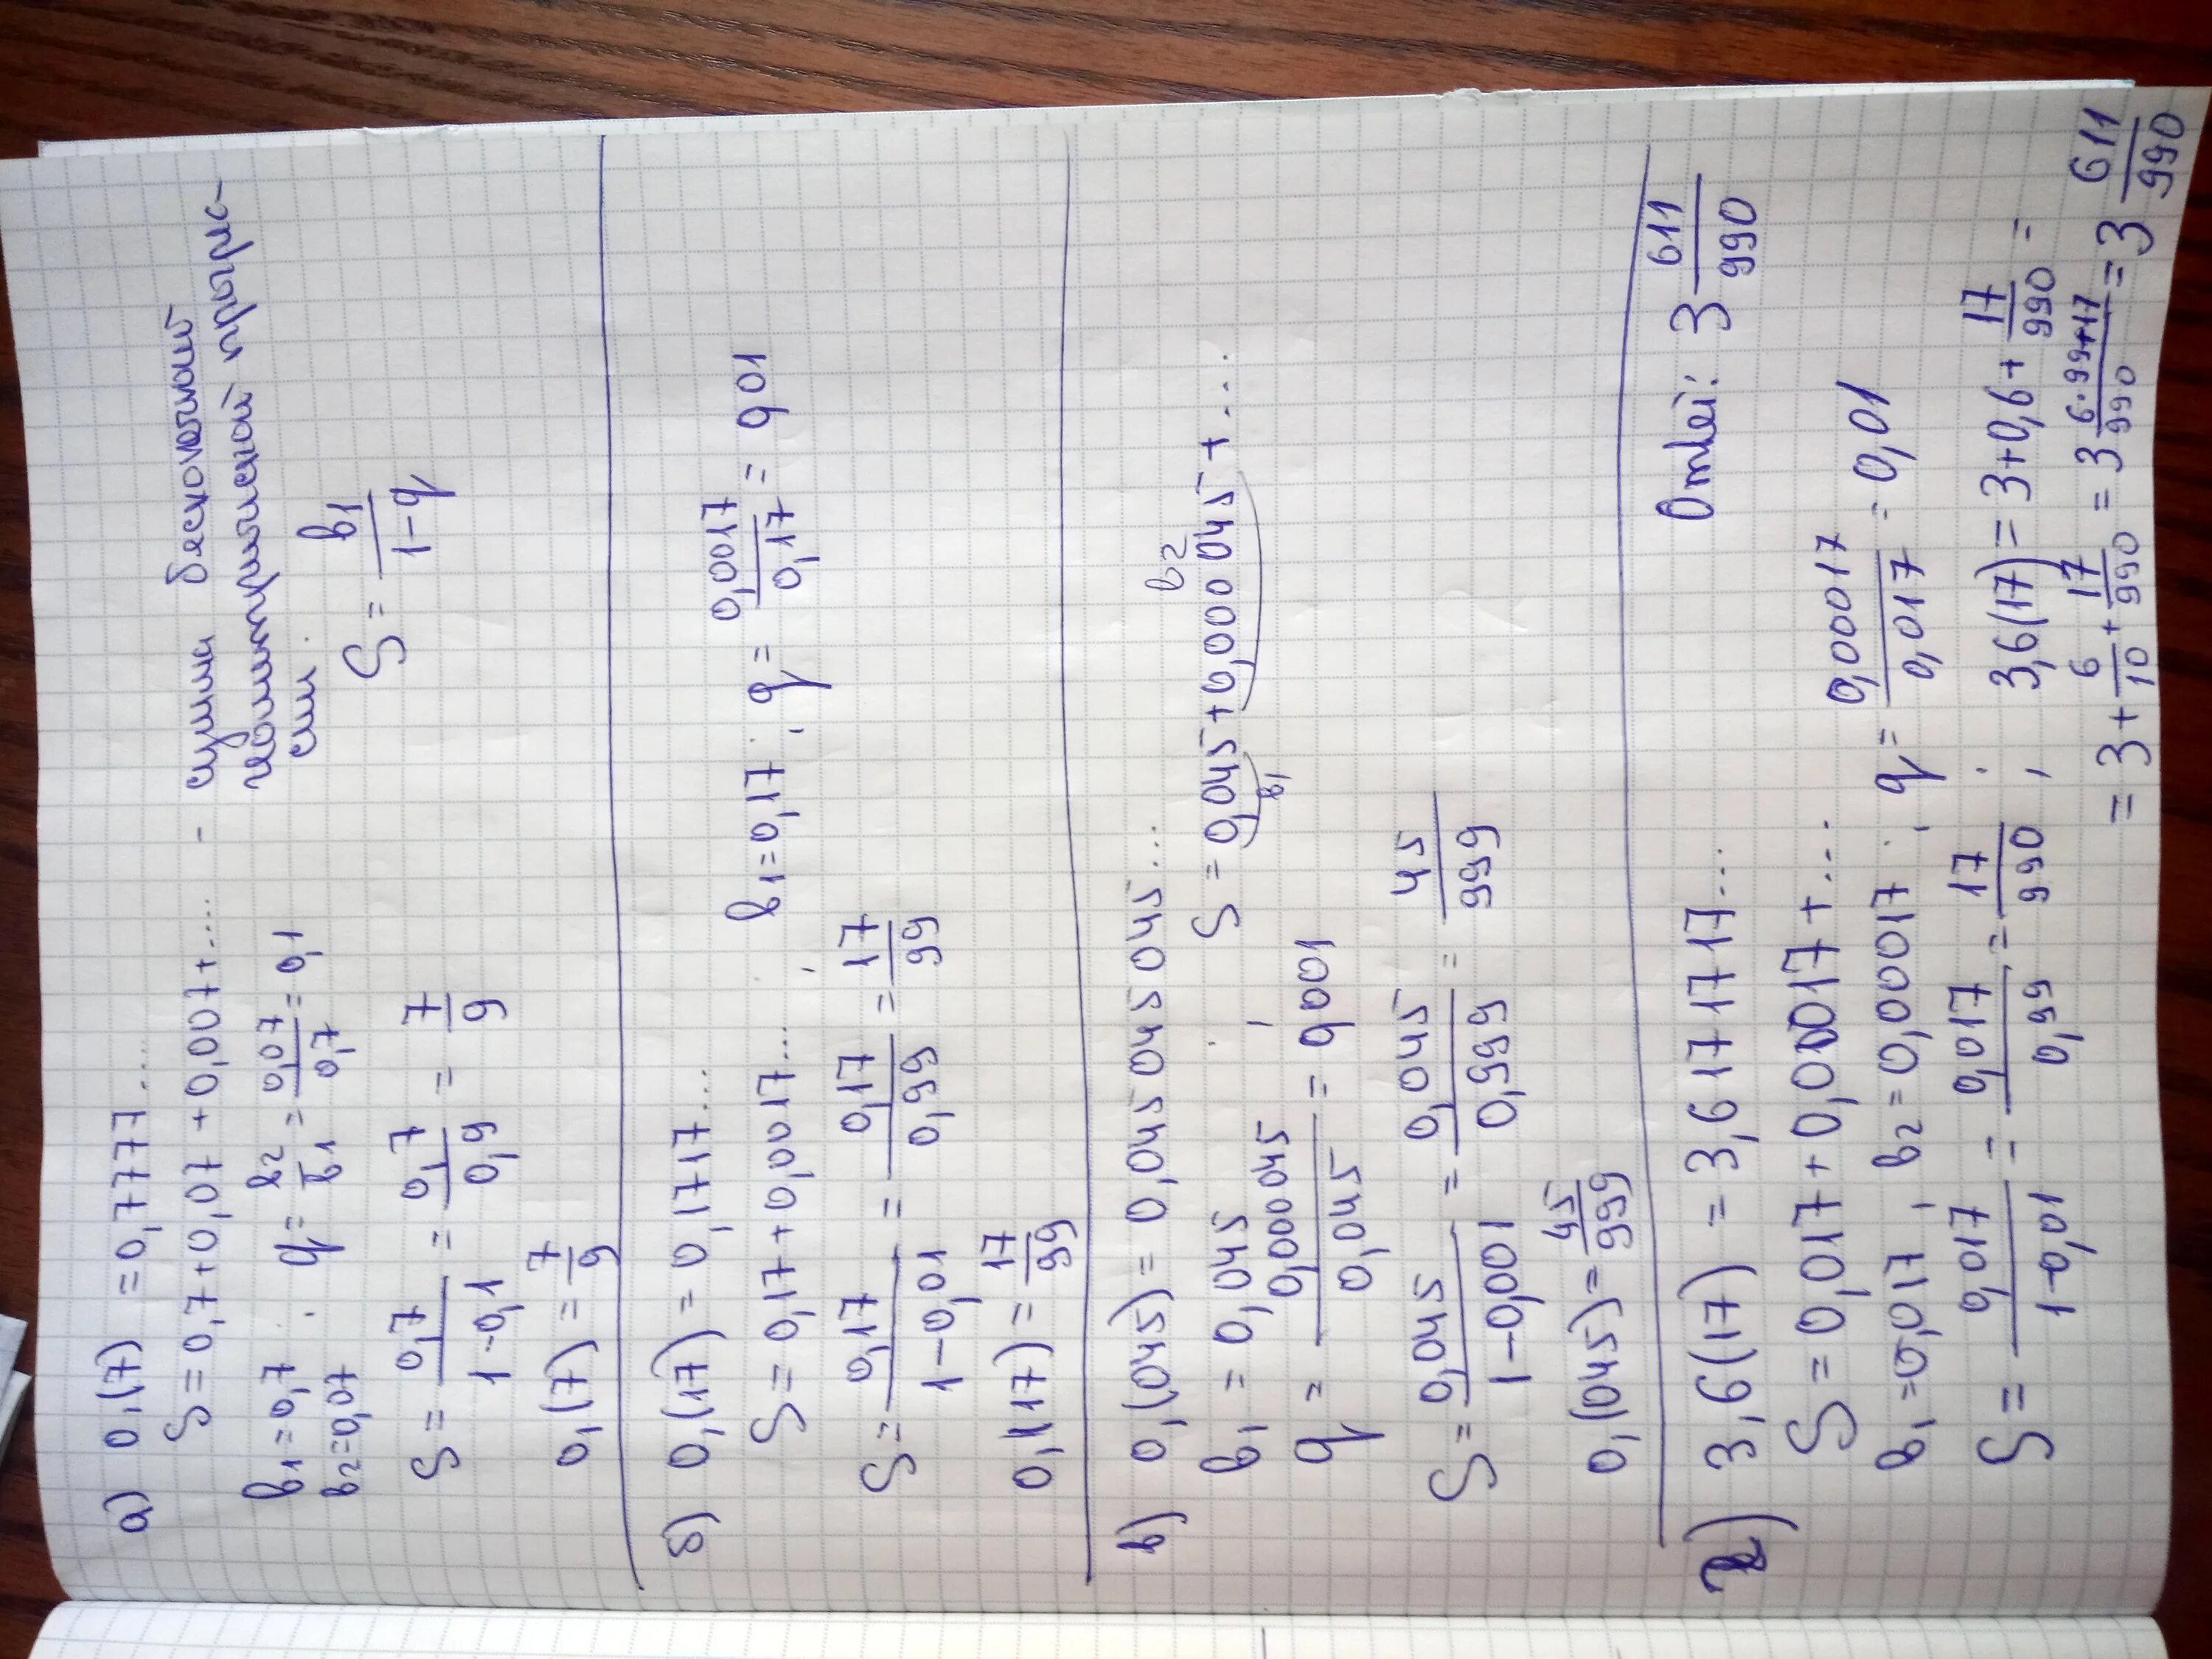 а) 0,(7) = 0,7777....
S = 0,7 + 0,07 + 0,007 + .... - сумма бесконечной
геометрической прогрес-
сии.
b₁ = 0,7 ; q = b₂/b₁ = 0,07/0,7 = 0,1
b₂ = 0,07
S = b₁/(1-q)
S = 0,7/(1-0,1) = 0,7/0,9 = 7/9
0,(7) = 7/9
б) 0,(17) = 0,171717...
S = 0,17 + 0,0017.... ; b₁ = 0,17 ; q = 0,0017/0,17 = 0,01
S = 0,17/(1-0,01) = 0,17/0,99 = 17/99
0,(17) = 17/99
в) 0,(045) = 0,045 045 045 045...
b₁ = 0,045 ; S = 0,045 + 0,000 045 + ...
b₁ b₂
q = 0,000 045/0,045 = 0,001
S = 0,045/(1-0,001) = 0,045/0,999 = 45/999
0,(045) = 45/999
г) 3,6(17) = 3,6 17 17 17... Ответ: 3 611/990
S = 0,017 + 0,00017 + ....
b₁ = 0,017 , b₂ = 0,00017 ; q = 0,00017/0,017 = 0,01
S = 0,017/(1-0,01) = 0,017/0,99 = 17/990 ; 3,6(17) = 3 + 0,6 + 17/990 =
= 3 + 6/10 + 17/990 = 3 6·99+17/990 = 3 611/990